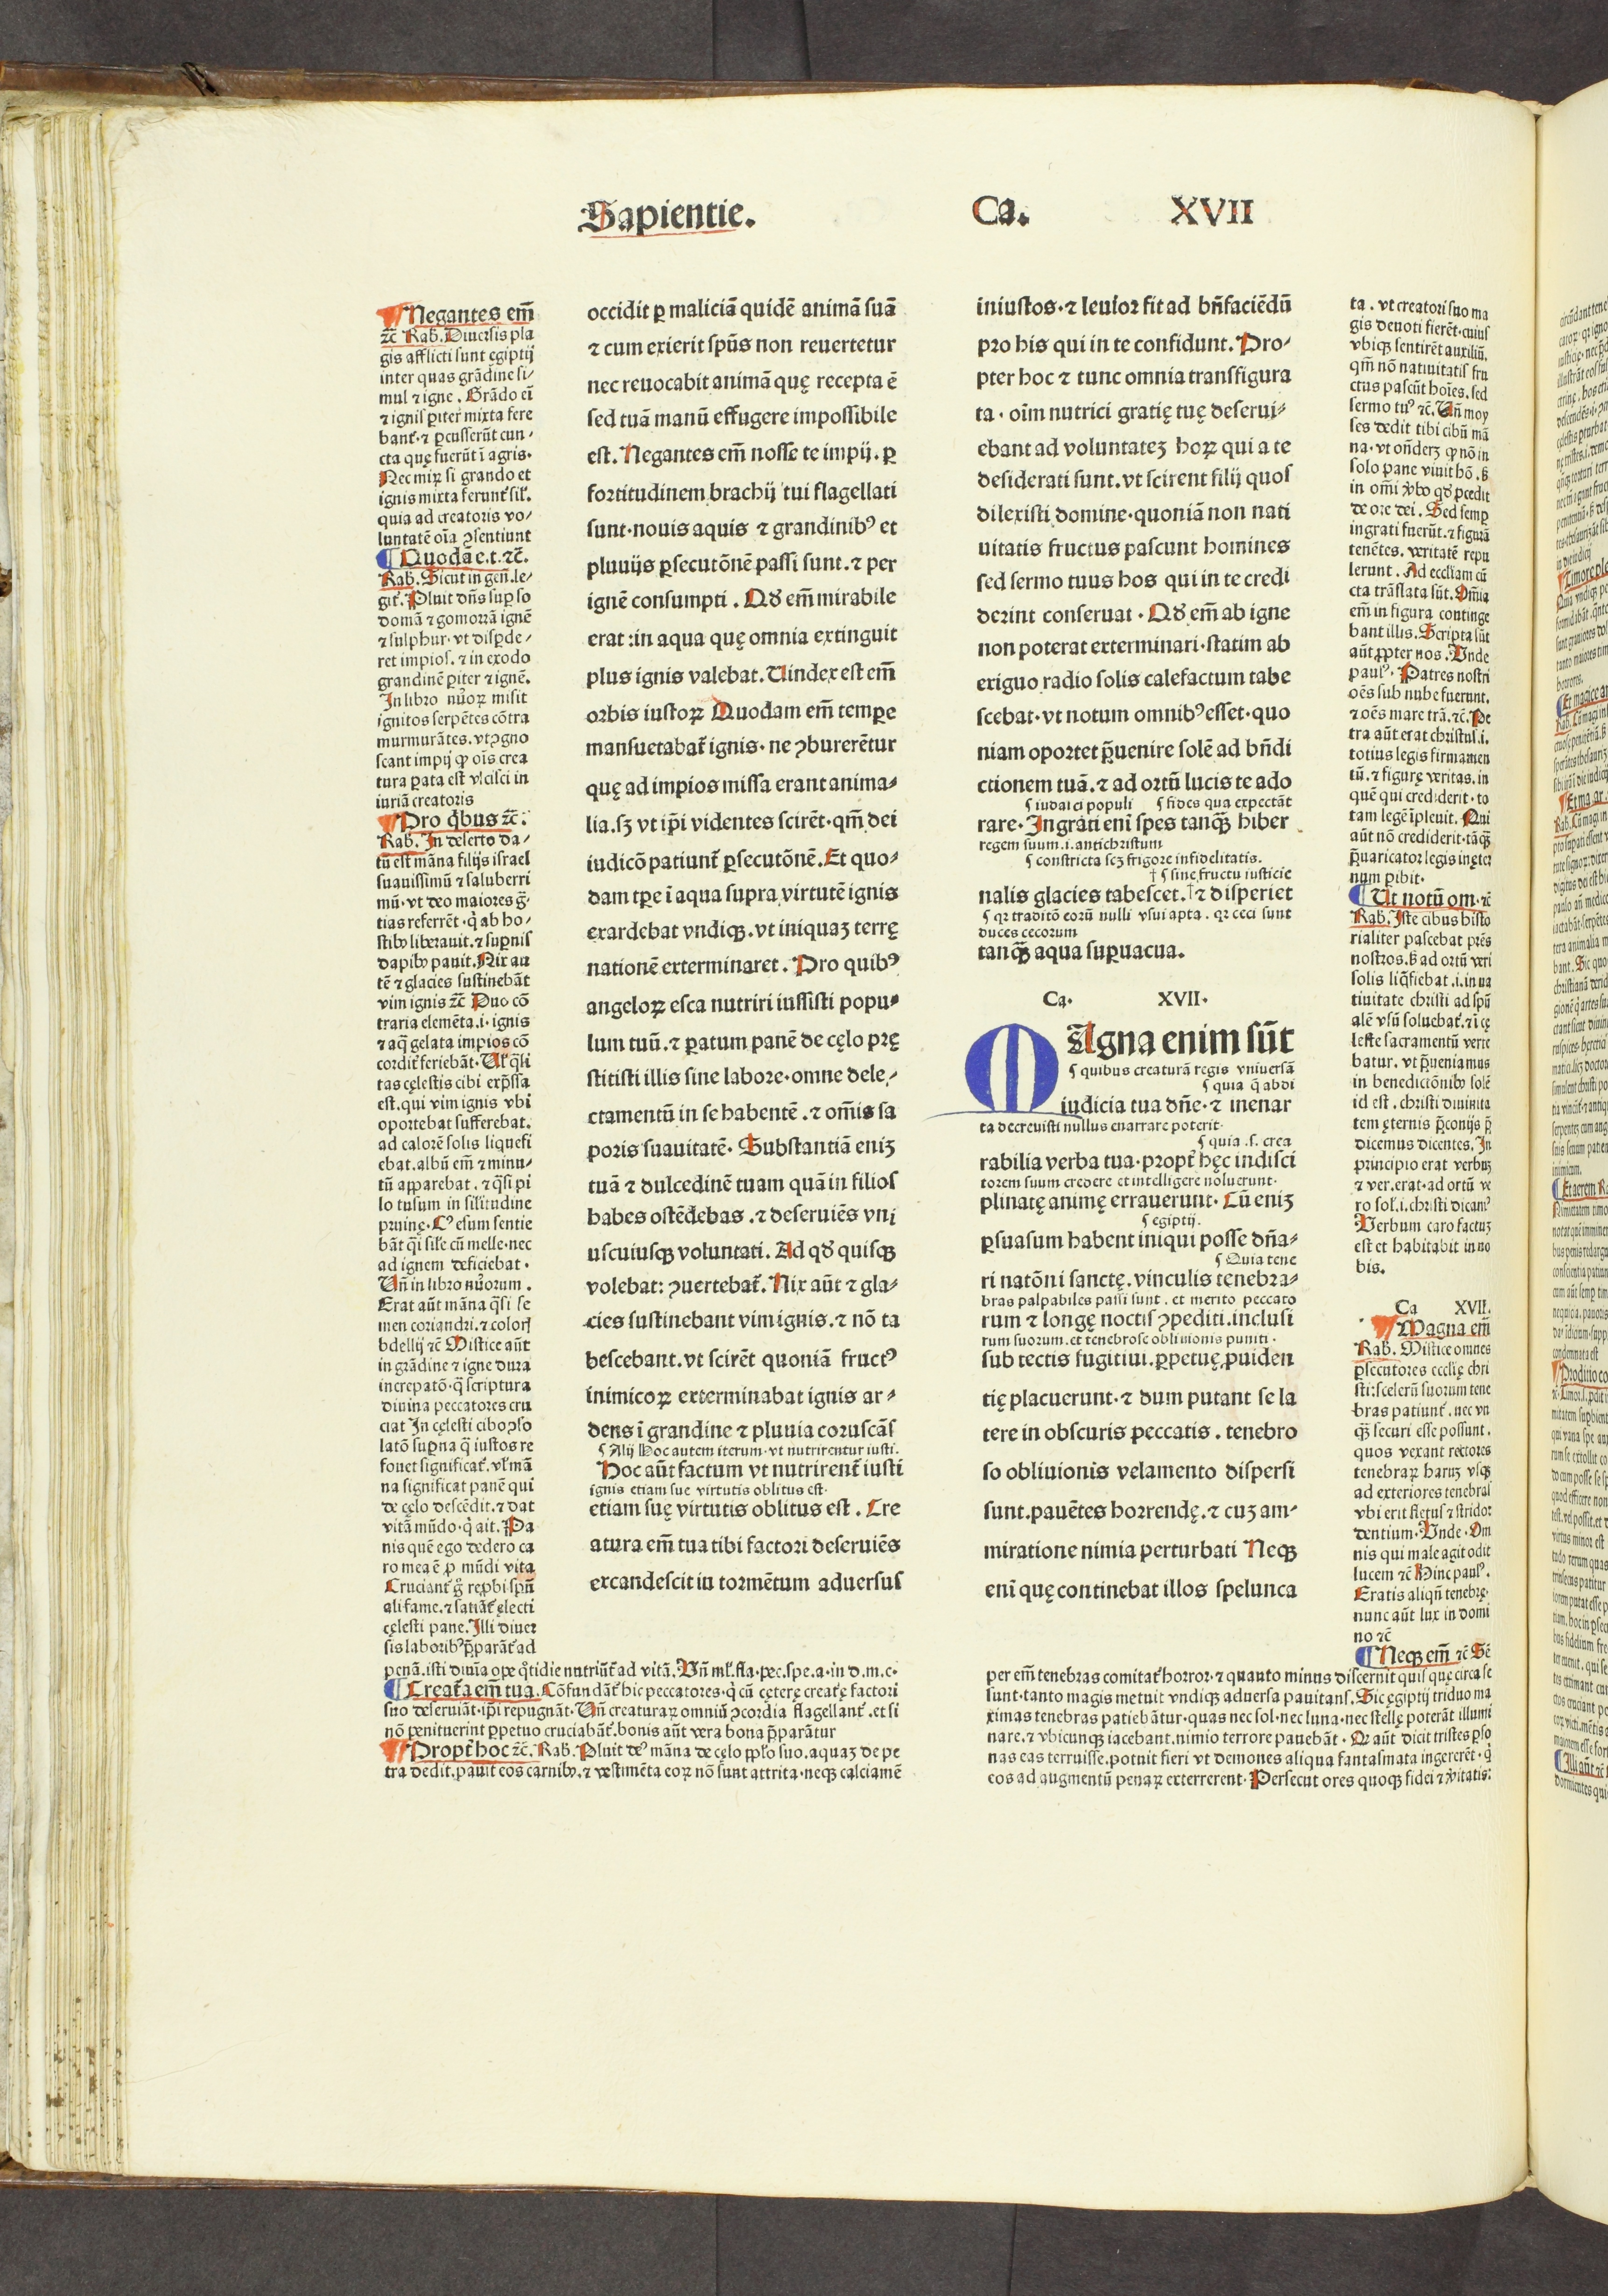 Sapientie.
Ca.
XVII
¶Negantes em̄
ꝛc̄ Rab. Diuersis pla
gis afflicti sunt egiptij
inter quas grādine si-
mul ⁊ igne. Grādo ei̅
⁊ ignis ꝑiter mixta fere
bant᷑. ⁊ ꝑcusserūt cun-
cta quę fuerūt ī agris.
Nec miꝝ si grando et
ignis mixta ferunt᷑ sil᷑.
quia ad creatoris vo-
luntatē oīa ꝯsentiunt
¶Quodā e.t.ꝛc̄.
Rab. Sicut in gen̄. le-
git᷑. Pluit dn̄s sup so
domā ⁊ gomorrā ignē
⁊ sulphur. vt disꝑde-
ret impios. ⁊ in exodo
grandinē ꝑiter ⁊ ignē.
In libro nūoꝝ misit
ignitos serpētes cōtra
murmurātes. vt ꝯgno
scant impij ꝙ oīs crea
tura ꝑata est vlcisci in
iuriā creatoris
¶Pro q̄bus ꝛc̄.
Rab. In deserto da-
tū est māna filijs israel
suauissimū ⁊ saluberri
mū. vt deo maiores ḡ-
tias referrēt. q̇ ab ho-
stibꝰ liberauit. ⁊ suꝑnis
dapibꝰ pauit. Nix au
tē ⁊ glacies sustinebāt
vim ignis ꝛc̄ Duo cō
traria elemēta.i. ignis
⁊ aq̄ gelata impios cō
cordit᷑ feriebāt. Ul᷑ q̄li
tas cęlestis cibi exp̄ssa
est. qui vim ignis vbi
oportebat sufferebat.
ad calorē solis liquefi
ebat. albū em̄ ⁊ minu-
tū apparebat. ⁊ q̄si pi
lo tusum in sil᷑itudine
pruinę. Cꝰ esum sentie
bāt q̄si sil᷑e cū melle. nec
ad ignem deficiebat.
Un̄ in libro nūorum.
Erat aūt māna q̄si se
men coriandri. ⁊ coloris
bdellij ꝛc̄ Mistice aūt
in grādine ⁊ igne dura
increpatō. q̄ scriptura
diuina peccatores cru
ciat In cęlesti cibo ꝯso
latō suꝑna q̄ iustos re
fouet significat᷑. vl᷑ mā
na significat panē qui
de cęlo descēdit. ⁊ dat
vitā mūdo. q̇ ait. Pa
nis quē ego dedero ca
ro mea ē ꝓ mūdi vita
Cruciant᷑ g̊ reꝓbi spūa
ali fame. ⁊ satiāt᷑ electi
cęlesti pane. Illi diuer
sis laboribꝰ p̄parāt᷑ ad
penā. isti diuīa ope q̇tidie nutriūt᷑ ad vitā. Un̄ ml᷑. fla. pec. spe. a. in d. m. c.
¶Creat᷑a em̄ tua. Cōfundāt᷑ hic peccatores. q̇ cū cęterę creat᷑ę factori
suo deseruiāt. ip̄i repugnāt. Un̄ creaturaꝝ omniū ꝯcordia flagellant᷑. et si
nō penituerint ꝑpetuo cruciabāt᷑. bonis aūt vera bona p̄parātur
¶Propt᷑ hoc ꝛc̄. Rab. Pluit deꝰ māna de cęlo pp̄lo suo. aquaꝫ de pe
tra dedit. pauit eos carnibꝰ. ⁊ vestimēta eoꝝ nō sunt attrita. neqꝫ calciamē
occidit ꝑ maliciā quidē animā suā
⁊ cum exierit spūs non reuertetur
nec reuocabit animā quę recepta ē
sed tuā manū effugere impossibile
est. Negantes em̄ nosse te impij. ꝑ
fortitudinem brachij tui flagellati
sunt. nouis aquis ⁊ grandinibꝰ et
pluuijs ꝑsecutōnē passi sunt. ⁊ per
ignē consumpti. Qđ em̄ mirabile
erat : in aqua quę omnia extinguit
plus ignis valebat. Uindex est em̄
orbis iustoꝝ Quodam em̄ tempe
mansuetabat᷑ ignis. ne ꝯburerētur
quę ad impios missa erant anima-
lia. sꝫ vt ip̄i videntes scirēt. qm̄ dei
iudicō patiunt᷑ ꝑsecutōnē. Et quo-
dam tꝑe ī aqua supra virtutē ignis
exardebat vndiqꝫ. vt iniquaꝫ terrę
nationē exterminaret. Pro quibꝰ
angeloꝝ esca nutriri iussisti popu-
lum tuū. ⁊ ꝑatum panē de cęlo prę
stitisti illis sine labore. omne dele-
ctamentū in se habentē. ⁊ om̄is sa
poris suauitatē. Substantiā eniꝫ
tuā ⁊ dulcedinē tuam quā in filios
habes ostēdebas. ⁊ deseruiēs vni
uscuiusqꝫ voluntati. Ad qđ quisqꝫ
volebat: ꝯuertebat᷑. Nix aūt ⁊ gla-
cies sustinebant vim ignis. ⁊ nō ta
bescebant. vt scirēt quoniā fructꝰ
inimicoꝝ exterminabat ignis ar-
dens ī grandine ⁊ pluuia coruscās
¶ Alij Hoc autem iterum. vt nutrirentur iusti.
Hoc aūt factum vt nutrirent᷑ iusti
ignis etiam sue virtutis oblitus est.
etiam suę virtutis oblitus est. Cre
atura em̄ tua tibi factori deseruiēs
excandescit in tormētum aduersus
iniustos. ⁊ leuior fit ad bn̄faciēdū
pro his qui in te confidunt. Pro-
pter hoc ⁊ tunc omnia transfigura
ta. oīm nutrici gratię tuę deserui-
ebant ad voluntateꝫ hoꝝ qui a te
desiderati sunt. vt scirent filij quos
dilexisti domine. quoniā non nati
uitatis fructus pascunt homines
sed sermo tuus hos qui in te credi
derint conseruat. Qđ em̄ ab igne
non poterat exterminari. statim ab
exiguo radio solis calefactum tabe
scebat. vt notum omnibꝰ esset. quo
niam oportet p̄uenire solē ad bn̄di
ctionem tuā. ⁊ ad ortū lucis te ado
¶ iudaici populi ¶ fides qua expectāt
rare. Ingrati enī spes tanqꝫ̄ hiber
regem suum.i. antichristum
¶ constricta seꝫ frigore infidelitatis.
† ¶ sine fructu iusticie
nalis glacies tabescet. † ⁊ disperiet
¶ qꝛ traditō eorū nulli vsui apta. qꝛ ceci sunt
duces cecorum
tanqꝫ̄ aqua suꝑuacua.
Ca. XVII.
MAgna enim sūt
¶ quibus creaturā regis vniuersā
¶ quia q̄ abdi
iudicia tua dn̄e. ⁊ inenar
ta decreuisti nullus enarrare poterit.
¶ quia .s. crea
rabilia verba tua. propt᷑ hęc indisci
torem suum credere et intelligere noluerunt.
plinatę animę errauerunt. Cū eniꝫ
¶ egiptij.
ꝑsuasum habent iniqui posse dn̄a-
¶ Quia tene
ri natōni sanctę. vinculis tenebra-
bras palpabiles passi sunt. et merito peccato
rum ⁊ longę noctis ꝯpediti. inclusi
rum suorum. et tenebrose obliuionis puniti.
sub tectis fugitiui. ꝑpetuę ꝓuiden
tię placuerunt. ⁊ dum putant se la
tere in obscuris peccatis. tenebro
so obliuionis velamento dispersi
sunt. pauētes horrendę. ⁊ cuꝫ am-
miratione nimia perturbati Neqꝫ
enī quę continebat illos spelunca
ta. vt creatori suo ma
gis deuoti fierēt. cuius
vbiqꝫ sentirēt auxiliū.
qm̄ nō natiuitatis fru
ctus pascūt hoīes. sed
sermo tuꝰ ꝛc̄. Un̄ moy
ses dedit tibi cibū mā
na. vt on̄dereꝫ ꝙ nō in
solo pane viuit hō. ẞ
in om̄i v̄bo qđ ꝓcedit
de ore dei. Sed semꝑ
ingrati fuerūt. ⁊ figurā
tenētes. veritatē repu
lerunt. Ad eccl̄iam cū
cta trāslata sūt. Omnia
em̄ in figura continge
bant illis. Scripta sūt
aūt ꝓpter nos. Unde
paulꝰ. Patres nostri
oēs sub nube fuerunt.
⁊ oēs mare trā. ꝛc̄. Pe
tra aūt erat christus.i.
totius legis firmamen
tū. ⁊ figurę veritas. in
quē qui crediderit. to
tam legē īpleuit. Qui
aūt nō crediderit. tāqꝫ
p̄uaricator legis in ęter
num ꝑibit.
¶Ut notū om. ꝛc̄
Rab. Iste cibus histo
rialiter pascebat pr̄es
nostros. ẞ ad ortū veri
solis liq̄fiebat .i. in na
tiuitate christi ad spūa
alē vsū soluebat᷑. ⁊ ī cę
leste sacramentū verte
batur. vt p̄ueniamus
in benedictōnibꝰ solē
id est. christi diuinita
tem ęternis p̄conijs p̄
dicemus dicentes. In
principio erat verbuꝫ
⁊ ver. erat. ad ortū ve
ro sol᷑.i. christi dicamꝰ
Verbum caro factuꝫ
est et habitabit in no
bis.
Ca XVII.
¶Magna em̄
Rab. Mistice omnes
ꝑsecutores ecclię chri
sti: scelerū suorum tene
bras patiunt᷑. nec vn
qꝫ̄ securi esse possunt.
quos vexant rectores
tenebraꝝ haruꝫ vsqꝫ
ad exteriores tenebras
vbi erit fletus ⁊ stridor
dentium. Unde. Om
nis qui male agit odit
lucem ꝛc̄ Hinc paulꝰ.
Eratis aliqn̄ tenebrę.
nunc aūt lux in domi
no ꝛc̄
¶Neqꝫ em̄ ꝛc̄ Sē
per em̄ tenebras comitat᷑ horror. ⁊ quanto minus discernit quis quę circa se
sunt. tanto magis metuit vndiqꝫ aduersa pauitans. Sic ęgiptij triduo ma
ximas tenebras patiebātur. quas nec sol. nec luna. nec stellę poterāt illumi
nare. ⁊ vbicunqꝫ iacebant. nimio terrore pauebāt. Qꝛ aūt dicit tristes ꝑso
nas eas terruisse. potuit fieri vt demones aliqua fantasmata ingererēt. q̇
eos ad augmentū penaꝝ exterrerent. Persecutores quoqꝫ fidei ⁊ v̄itatis.